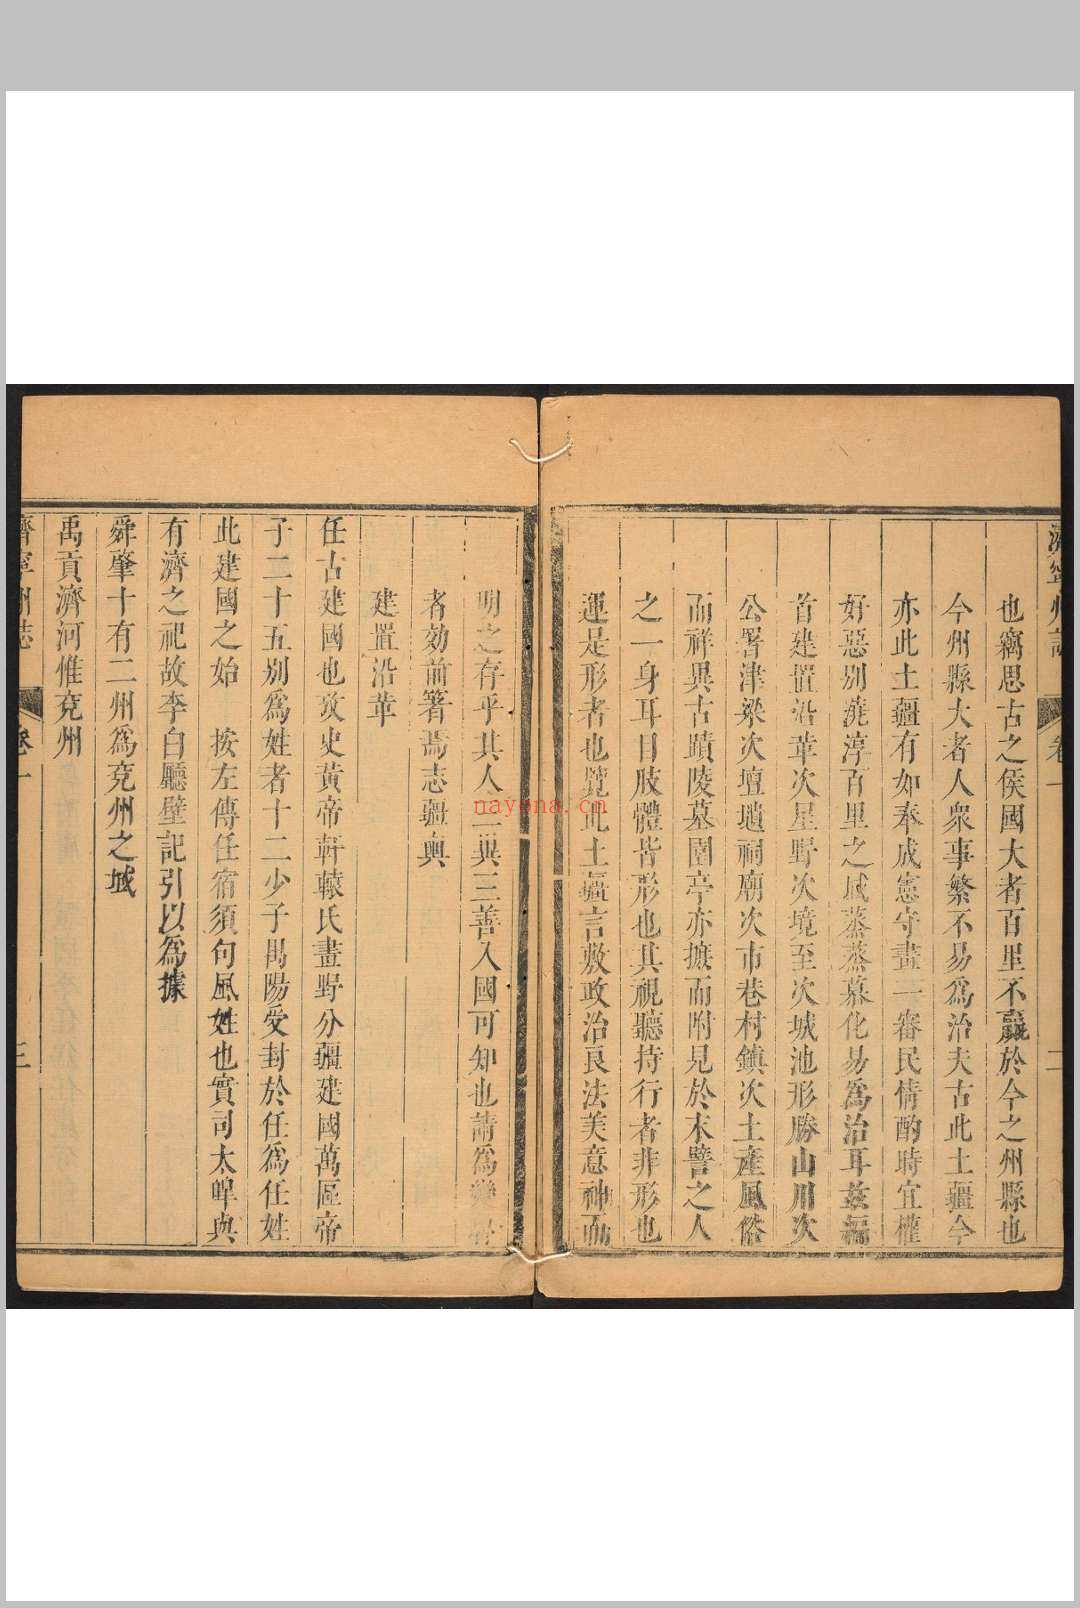 濟寧州志 卷一 二
也竊思古之侯國大者百里不贏於今之州縣也
今州縣大者人衆事繁不易爲治夫古此土疆今
亦此土疆有如奉成憲守畫一審民情酌時宜權
好惡別澆淳百里之域蒸蒸慕化易爲治耳茲編
首建置沿革次星野次境至次城池形勝山川次
公署津梁次壇壝祠廟次市巷村鎮次土產風俗
而祥異古蹟陵墓園亭亦摭而附見於末譬之人
之一身耳目肢體皆形也其視聽持行者非形也
運是形者也覽此土疆言敷政治良法美意神而
明之存乎其人一異三善入國可知也請爲
者効前箸焉志疆輿
建置沿革
任古建國也攷史黃帝軒轅氏畫野分疆建國萬區帝
子二十五別爲姓者十二少子禺陽受封於任爲任姓
此建國之始 按左傳任宿須句風姓也實司太皞與
有濟之祀故李白廳壁記引以爲據
舜肇十有二州爲兗州之域
禹貢濟河惟兗州
濟寧州志 卷一 三
nayona.cn